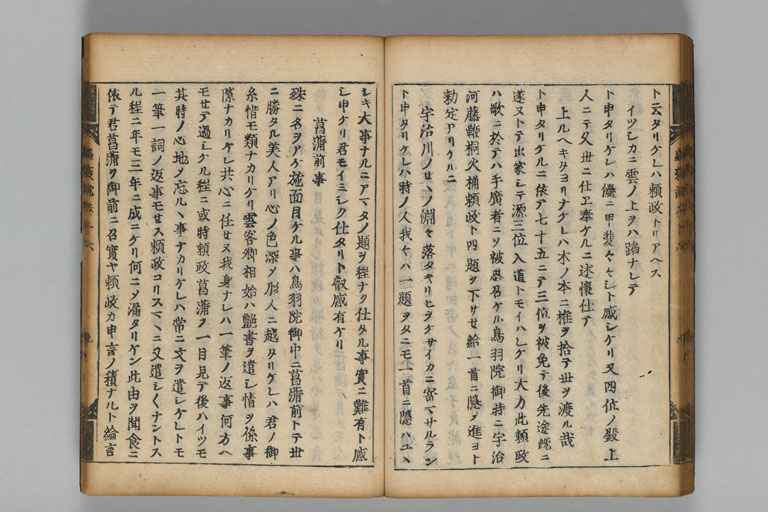 ト云タリケレハ頼政トリアヘス
イツシカニ雲ノ上ヲハ踏ナレテ
ト申タリケレハ優ニ甲斐々々シト感シケリ又四位ノ殿上
人ニテ久世ニ仕ヱ奉ケルニ述懐仕テ
上ルヘキタヨリナケレハ木ノ本ニ椎ヲ拾テ世ヲ渡ル哉
ト申タリケルニ依テ七十五ニテ三位ヲ被免テ後先途既ニ
遂ヌトテ出家シテ源三位入道トモイハレケリ大方此頼政
ハ歌ニ於テハ手廣者ニソ被思召ケル鳥羽院御時ニ宇治
河藤鞭桐火桶頼政ト四題ヲ下サセ給一首ニ隠ク進ヨト
勅定アリケルニ
宇治川ノセヽノ淵々落タキリヒヲケサイカニ寄マサルラン
ト申タリケレハ時ノ人我々ハ一題ヲタニモ一首ニ隠ハユヽ
シキ大事ナルニアマタノ題ヲ程ナク仕タル事實ニ難有ト感
シ申ケリ君モイミシク仕タリト叡感有ケリ
菖蒲前事
殊ニ名ヲアケ施面目ケル事ハ鳥羽院御中ニ菖蒲前トテ世
ニ勝タル美人アリ心ノ色深ソ形人ニ越タリケレハ君ノ御
糸惜モ類ナカリケリ雲客卿相始ハ艶書ヲ遣シ情ヲ係事
隙ナカリケレ共心ニ任セヌ我身ナレハ一筆ノ返事何方ヘ
モセテ過シケル程ニ或時頼政菖蒲ヲ一目見テ後ハイツモ
其時ノ心地ソ忘ルヽ事ナカリケレハ常ニ文ヲ遣シケレトモ
一筆一詞ノ返事モセス頼政コリスマヽニ又遣シ〱ナントス
ル程ニ年モ三年ニ成ニケリ何ニソ漏タリケン此由ヲ聞食ニ
依テ君菖蒲ヲ御前ニ召實ヤ頼政カ申言ノ積ナルト綸言